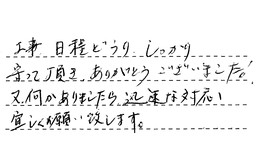 工事 日程どうり しっかり
守って頂き ありがとう ございました。!
又何かありましたら 迅速な対応い
宜しくお願い致します。